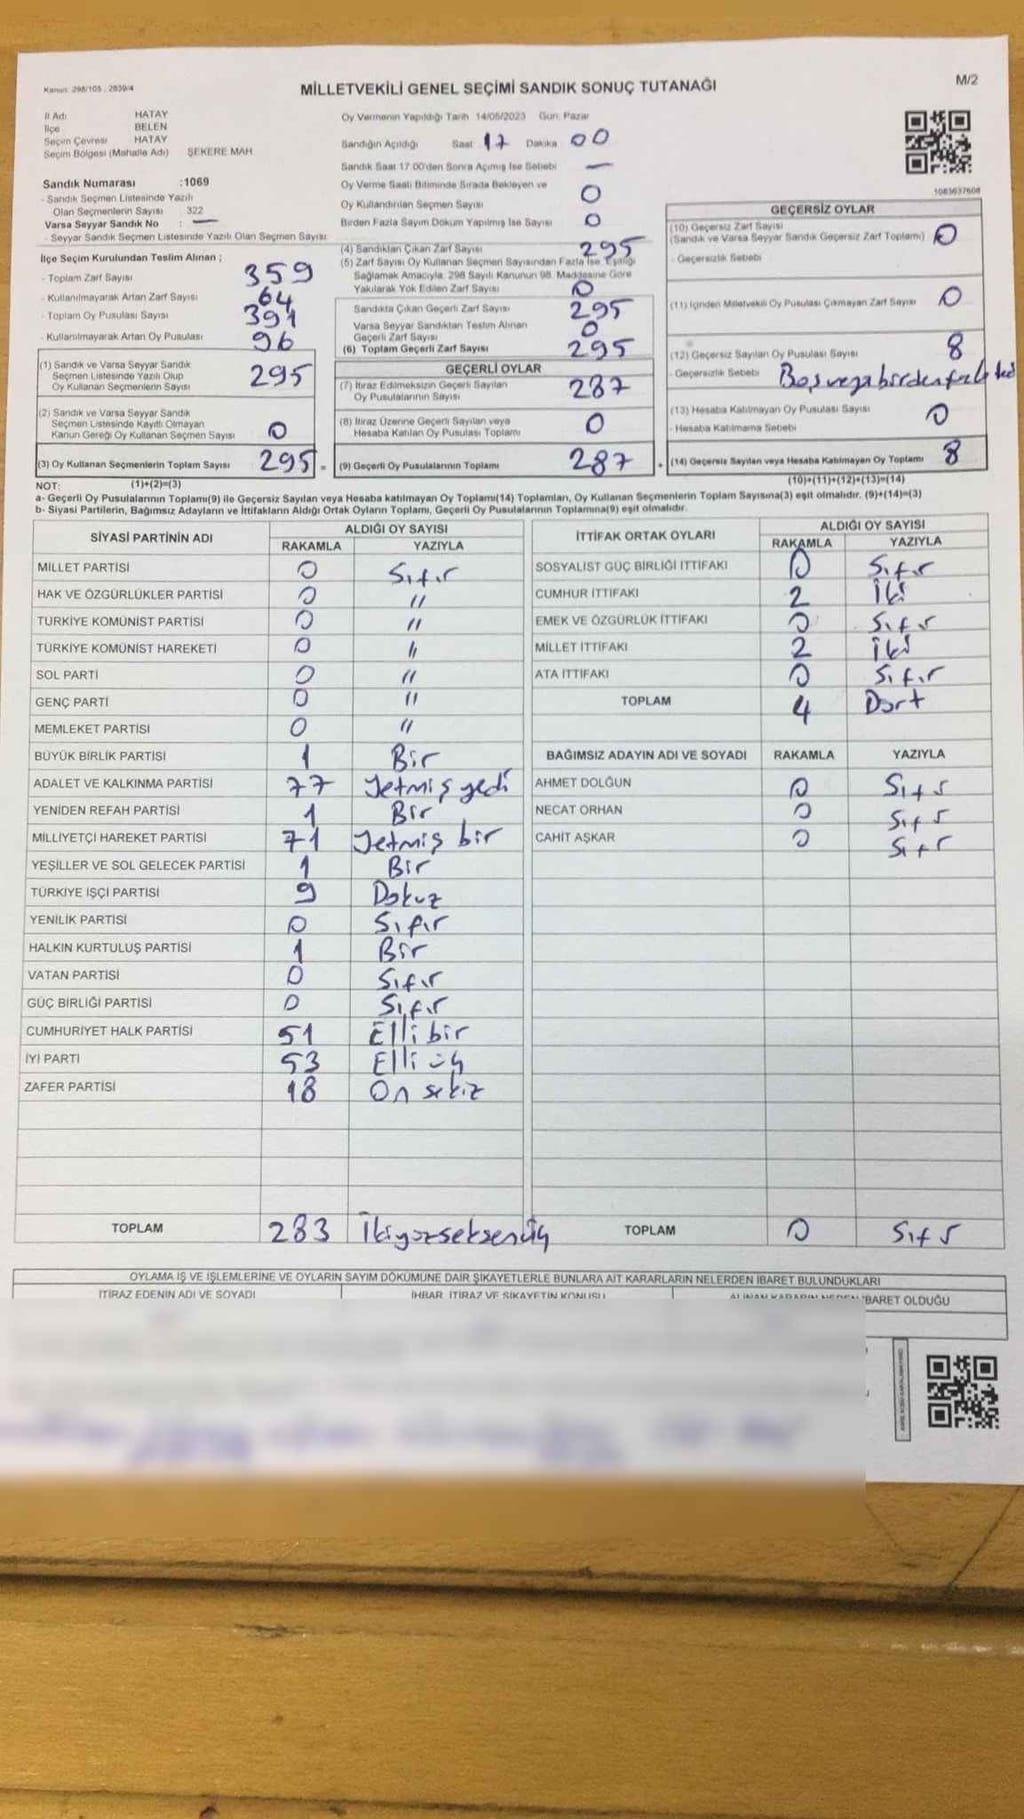 Kanun: 298/105 , 2839/4
MİLLETVEKİLİ GENEL SEÇİMİ SANDIK SONUÇ TUTANAĞI
M/2
İl Adı HATAY
İlçe BELEN
Seçim Çevresi HATAY
Seçim Bölgesi (Mahalle Adı) ŞEKERE MAH.
Sandık Numarası :1069
- Sandık Seçmen Listesinde Yazılı
Olan Seçmenlerin Sayısı 322
Varsa Seyyar Sandık No : —
- Seyyar Sandık Seçmen Listesinde Yazılı Olan Seçmen Sayısı:
İlçe Seçim Kurulundan Teslim Alınan ;
- Toplam Zarf Sayısı 359
- Kullanılmayarak Artan Zarf Sayısı 64
- Toplam Oy Pusulası Sayısı 391
- Kullanılmayarak Artan Oy Pusulası 96
(1) Sandık ve Varsa Seyyar Sandık
Seçmen Listesinde Yazılı Olup
Oy Kullanan Seçmenlerin Sayısı 295
(2) Sandık ve Varsa Seyyar Sandık
Seçmen Listesinde Kayıtlı Olmayan
Kanun Gereği Oy Kullanan Seçmen Sayısı 0
(3) Oy Kullanan Seçmenlerin Toplam Sayısı 295 =
Oy Vermenin Yapıldığı Tarih 14/05/2023 Gün: Pazar
Sandığın Açıldığı Saat 17 Dakika 00
Sandık Saat 17:00'den Sonra Açılmış İse Sebebi —
Oy Verme Saati Bitiminde Sırada Bekleyen ve
Oy Kullandırılan Seçmen Sayısı 0
Birden Fazla Sayım Döküm Yapılmış İse Sayısı 0
(4) Sandıktan Çıkan Zarf Sayısı 295
(5) Zarf Sayısı Oy Kullanan Seçmen Sayısından Fazla İse, Eşitliği
Sağlamak Amacıyla, 298 Sayılı Kanunun 98. Maddesine Göre
Yakılarak Yok Edilen Zarf Sayısı 0
Sandıkta Çıkan Geçerli Zarf Sayısı 295
Varsa Seyyar Sandıktan Teslim Alınan
Geçerli Zarf Sayısı 0
(6) Toplam Geçerli Zarf Sayısı 295
GEÇERLİ OYLAR
(7) İtiraz Edilmeksizin Geçerli Sayılan
Oy Pusulalarının Sayısı 287
(8) İtiraz Üzerine Geçerli Sayılan veya
Hesaba Katılan Oy Pusulası Toplamı 0
(9) Geçerli Oy Pusulalarının Toplamı 287 +
1083637608
GEÇERSİZ OYLAR
(10) Geçersiz Zarf Sayısı
(Sandık ve Varsa Seyyar Sandık Geçersiz Zarf Toplamı) 0
- Geçersizlik Sebebi
(11) İçinden Milletvekili Oy Pusulası Çıkmayan Zarf Sayısı 0
(12) Geçersiz Sayılan Oy Pusulası Sayısı 8
- Geçersizlik Sebebi Boş veya birden fazla
(13) Hesaba Katılmayan Oy Pusulası Sayısı 0
- Hesaba Katılmama Sebebi
(14) Geçersiz Sayılan veya Hesaba Katılmayan Oy Toplamı 8
NOT: (1)+(2)=(3) (10)+(11)+(12)+(13)=(14)
a- Geçerli Oy Pusulalarının Toplamı(9) ile Geçersiz Sayılan veya Hesaba katılmayan Oy Toplamı(14) Toplamları, Oy Kullanan Seçmenlerin Toplam Sayısına(3) eşit olmalıdır. (9)+(14)=(3)
b- Siyasi Partilerin, Bağımsız Adayların ve İttifakların Aldığı Ortak Oyların Toplamı, Geçerli Oy Pusulalarının Toplamına(9) eşit olmalıdır.
SİYASİ PARTİNİN ADI ALDIĞI OY SAYISI
RAKAMLA YAZIYLA
MİLLET PARTİSİ 0 Sıfır
HAK VE ÖZGÜRLÜKLER PARTİSİ 0 "
TÜRKİYE KOMÜNİST PARTİSİ 0 "
TÜRKİYE KOMÜNİST HAREKETİ 0 "
SOL PARTİ 0 "
GENÇ PARTİ 0 "
MEMLEKET PARTİSİ 0 "
BÜYÜK BİRLİK PARTİSİ 1 Bir
ADALET VE KALKINMA PARTİSİ 77 Yetmiş yedi
YENİDEN REFAH PARTİSİ 1 Bir
MİLLİYETÇİ HAREKET PARTİSİ 71 Yetmiş bir
YEŞİLLER VE SOL GELECEK PARTİSİ 1 Bir
TÜRKİYE İŞÇİ PARTİSİ 9 Dokuz
YENİLİK PARTİSİ 0 Sıfır
HALKIN KURTULUŞ PARTİSİ 1 Bir
VATAN PARTİSİ 0 Sıfır
GÜÇ BİRLİĞİ PARTİSİ 0 Sıfır
CUMHURİYET HALK PARTİSİ 51 Elli bir
İYİ PARTİ 53 Elli üç
ZAFER PARTİSİ 18 On sekiz
TOPLAM 283 İkiyüzseksenüç
İTTİFAK ORTAK OYLARI ALDIĞI OY SAYISI
RAKAMLA YAZIYLA
SOSYALİST GÜÇ BİRLİĞİ İTTİFAKI 0 Sıfır
CUMHUR İTTİFAKI 2 İki
EMEK VE ÖZGÜRLÜK İTTİFAKI 0 Sıfır
MİLLET İTTİFAKI 2 İki
ATA İTTİFAKI 0 Sıfır
TOPLAM 4 Dört
BAĞIMSIZ ADAYIN ADI VE SOYADI RAKAMLA YAZIYLA
AHMET DOLĞUN 0 Sıfır
NECAT ORHAN 0 Sıfır
CAHİT AŞKAR 0 Sıfır
TOPLAM 0 Sıfır
OYLAMA İŞ VE İŞLEMLERİNE VE OYLARIN SAYIM DÖKÜMÜNE DAİR ŞİKAYETLERLE BUNLARA AİT KARARLARIN NELERDEN İBARET BULUNDUKLARI
İTİRAZ EDENİN ADI VE SOYADI İHBAR, İTİRAZ VE ŞİKAYETİN KONUSU ALINAN KARARIN NEDEN İBARET OLDUĞU